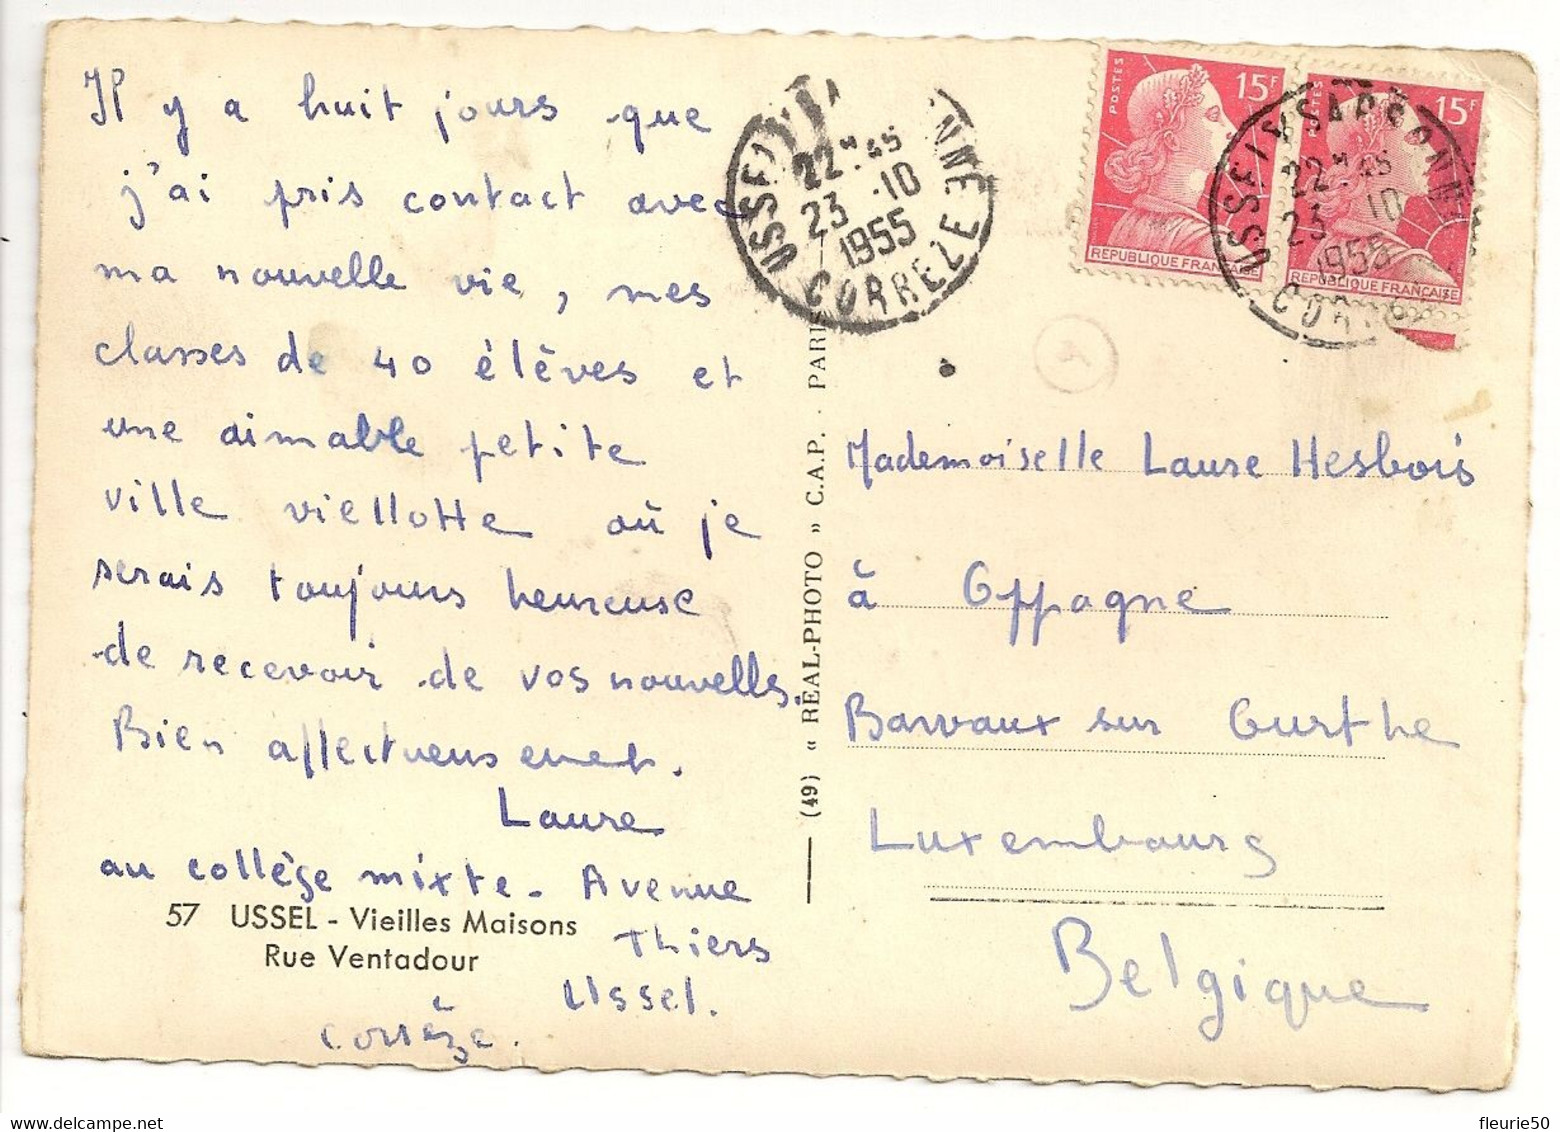 Il y a huit jours que
j'ai pris contact avec
ma nouvelle vie, mes
classes de 40 élèves et
une aimable petite
ville viellotte où je
serais toujours heureuse
de recevoir de vos nouvelles.
Bien affectueusement.
Laure
au collège mixte - Avenue
Thiers
Ussel.
Corrèze.
57 USSEL - Vieilles Maisons
Rue Ventadour
(49) « REAL-PHOTO » C.A.P. . PARIS
22H 45
23 -10
1955
CORREZE
POSTES
15F
REPUBLIQUE FRANÇAISE
POSTES
15F
REPUBLIQUE FRANÇAISE
22H 45
23 10
1955
Mademoiselle Laure Hesbois
à Oppagne
Barvaux sur Ourthe
Luxembourg
Belgique
fleurie50